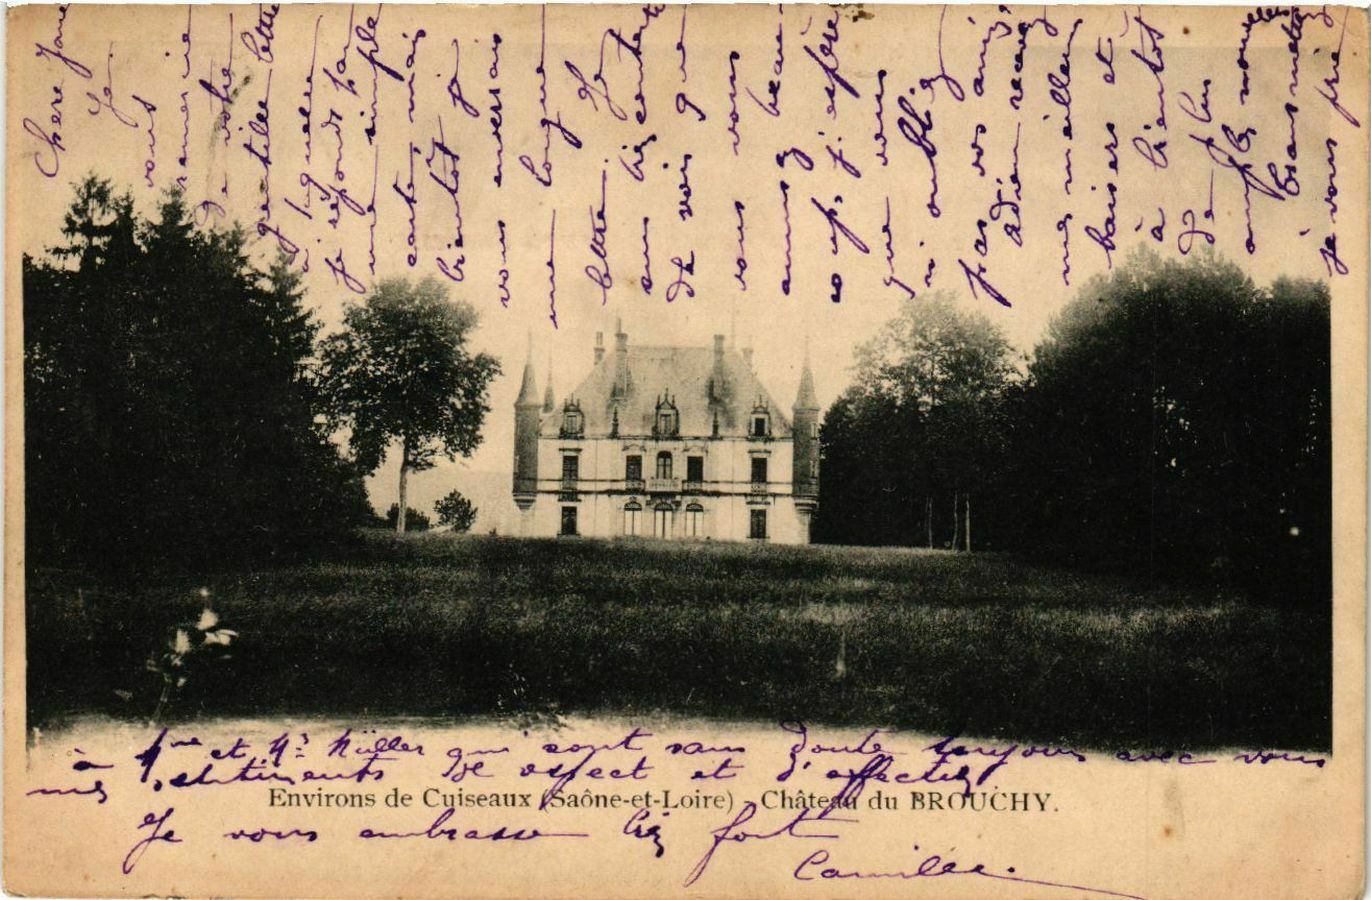 Chère Jane
Je
vous
remercie
de votre
gentille lettre
à laquelle
je réponds par
une simple
carte, mais
bientôt je
vous enverrais
une longue
lettre. Je
suis bien contente
de voir que
vous vous
amusez beau-
coup, j'espère
que vous
n'oubliez
pas vos amis,
Adrien recevez
mes meilleurs
baisers et
à bientôt
de plus
amples nouvelles
Transmettez
je vous prie
à Mme et Mr Müller qui sont sans doute toujours avec vous
mes sentiments de respect et d'affection
Environs de Cuiseaux (Saône-et-Loire) - Château du BROUCHY.
Je vous embrasse bien fort
Camille.